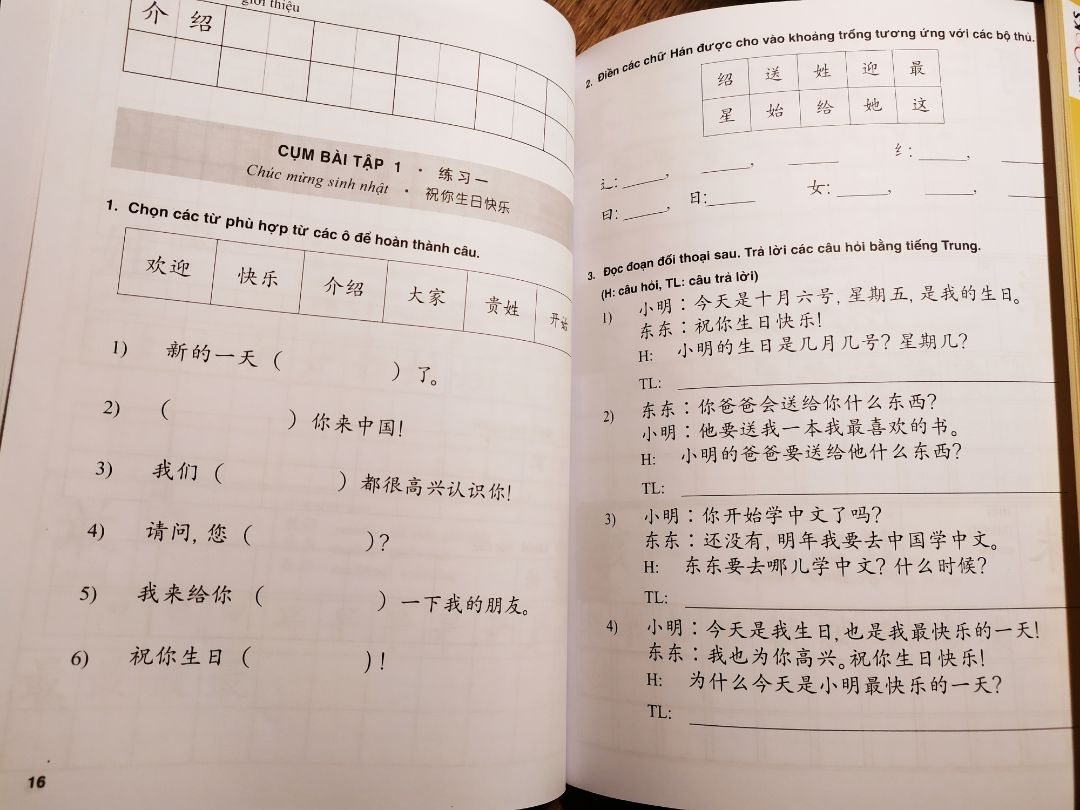 giới thiệu
介 绍
CỤM BÀI TẬP 1 · 练习一
Chúc mừng sinh nhật · 祝你生日快乐
1. Chọn các từ phù hợp từ các ô để hoàn thành câu.
欢迎 快乐 介绍 大家 贵姓 开始
1) 新的一天 ( ) 了。
2) ( ) 你来中国!
3) 我们 ( ) 都很高兴认识你!
4) 请问, 您 ( )?
5) 我来给你 ( ) 一下我的朋友。
6) 祝你生日 ( )!
16
2. Điền các chữ Hán được cho vào khoảng trống tương ứng với các bộ thủ.
绍 送 姓 迎 最
星 始 给 她 这
辶: ______, ______, ______ 纟: ______, ______
曰: ______, 日: ______ 女: ______, ______, ______
3. Đọc đoạn đối thoại sau. Trả lời các câu hỏi bằng tiếng Trung.
(H: câu hỏi, TL: câu trả lời)
1) 小明: 今天是十月六号, 星期五, 是我的生日。
东东: 祝你生日快乐!
H: 小明的生日是几月几号? 星期几?
TL: ______
2) 东东: 你爸爸会送给你什么东西?
小明: 他要送我一本我最喜欢的书。
H: 小明的爸爸要送给他什么东西?
TL: ______
3) 小明: 你开始学中文了吗?
东东: 还没有, 明年我要去中国学中文。
H: 东东要去哪儿学中文? 什么时候?
TL: ______
4) 小明: 今天是我生日, 也是我最快乐的一天!
东东: 我也为你高兴。祝你生日快乐!
H: 为什么今天是小明最快乐的一天?
TL: ______